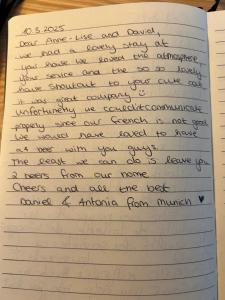 10.5.2025
Dear Anne-Lise and David,
we had a lovely stay at
your house. We loved the atmosphere,
your service and the so so lovely
house shoutout to your cute cat
it was great company! ☺
Unfortunetly we couldn't communicate
properly since our french is not good.
We would have loved to have
a beer with you guys.
The least we can do is leave you
2 beers from our home.
Cheers and all the best
Daniel & Antonia from munich ♥